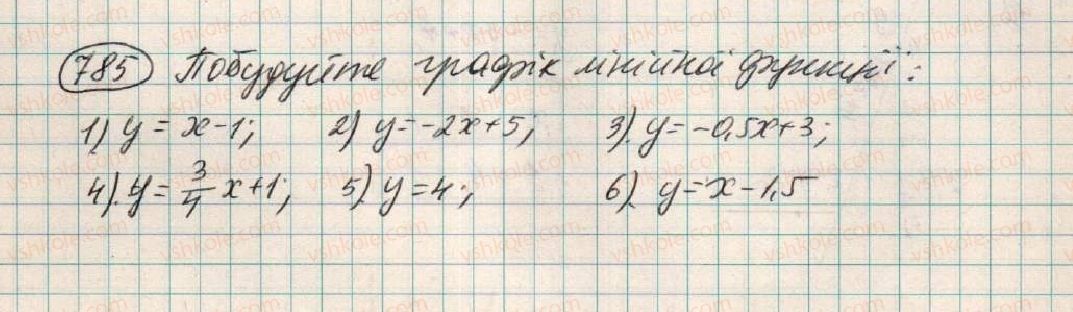 785 Побудуйте графік лінійної функції:
1) y = x - 1; 2) y = -2x + 5; 3) y = -0,5x + 3;
4) y = 3/4 x + 1; 5) y = 4; 6) y = x - 1,5